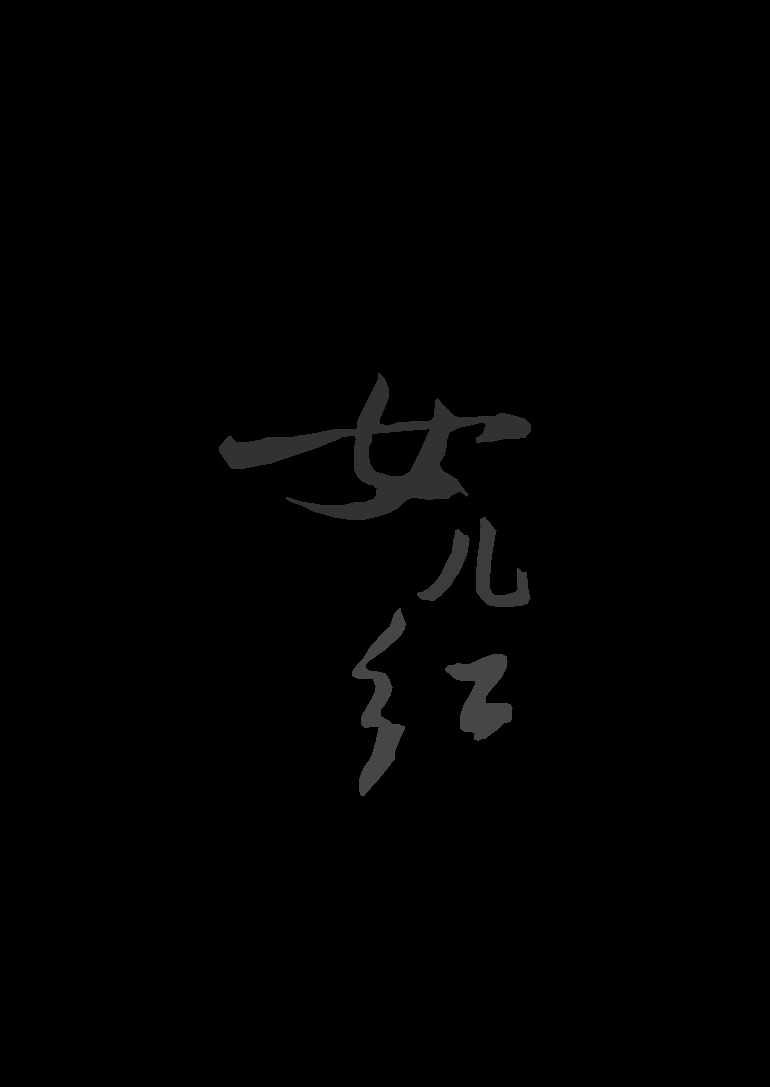 女
儿
红